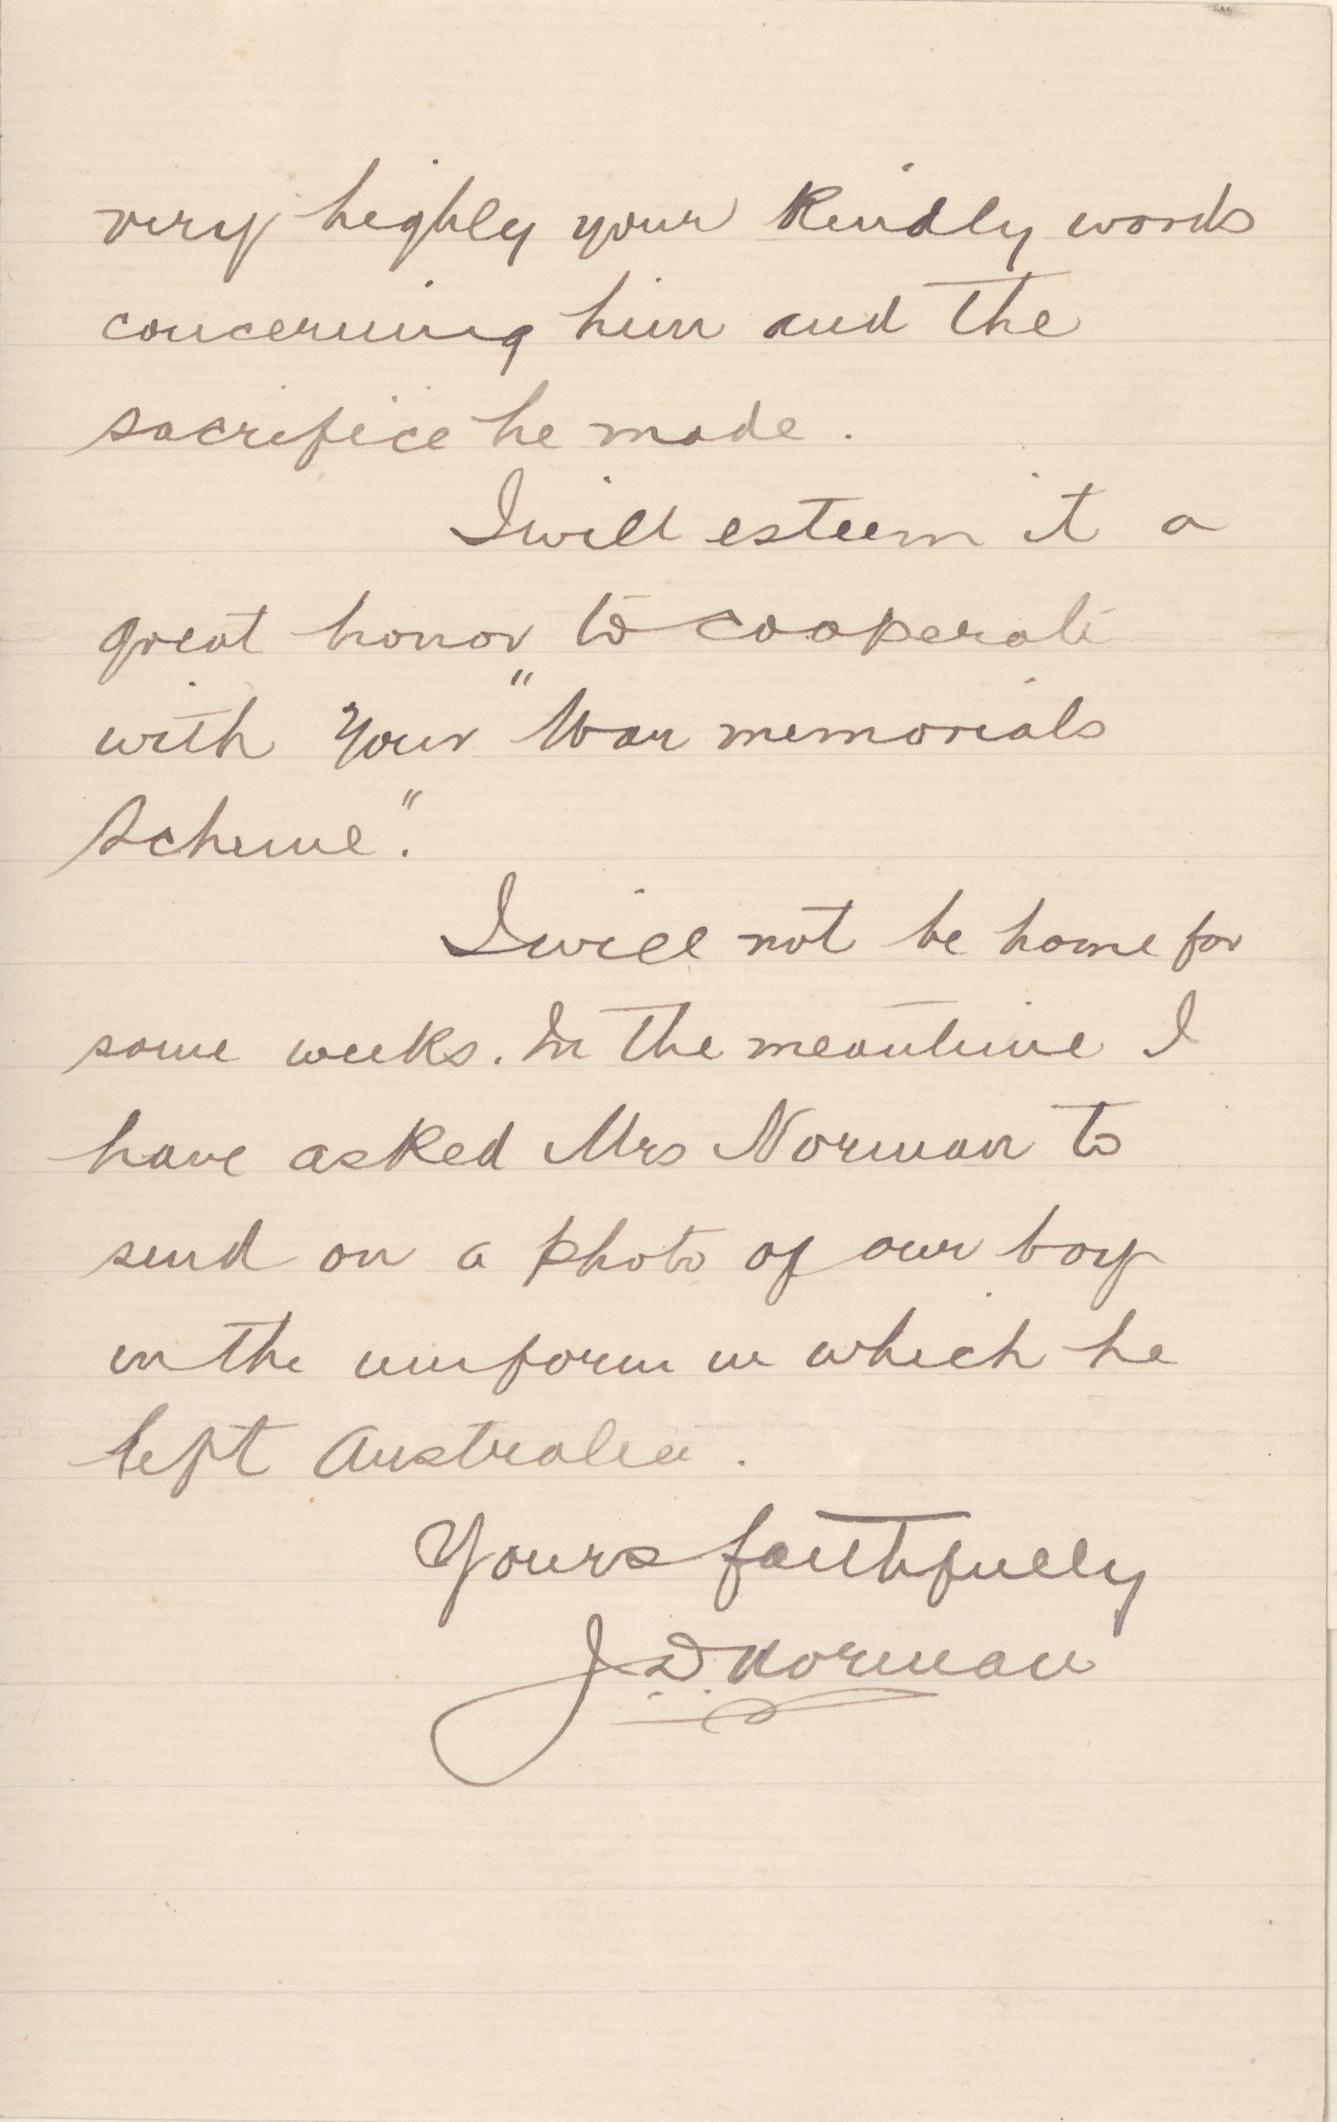 very highly your kindly words
concerning him and the
sacrifice he made.
I will esteem it a
great honor to cooperate
with your "War memorials
Scheme".
I will not be home for
some weeks. In the meantime I
have asked Mrs Norman to
send on a photo of our boy
in the uniform in which he
left Australia.
Yours faithfully
J D Norman